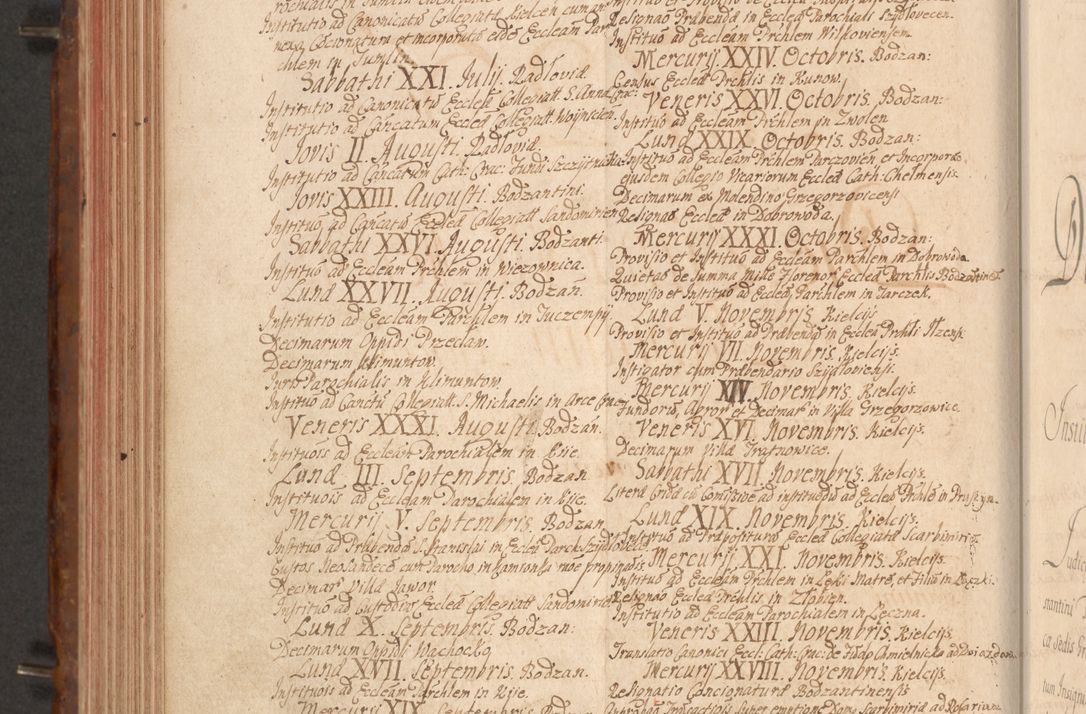 Institutio ad Canonicatū Collegiatę Kielcen cum an
nexa Concionatura et incorporatis eidē Eccleam Par
chlem in Tumlin.
Sabbathi XXI. Julij. Radloviæ.
Institutio ad Canonicatū Eccleæ Collegiatt. S. Annæ Crac:
Institutio ad Cancatum Eccleæ Collegiatt. Woynicien.
Jovis II. Augusti. Radloviæ.
Institutio ad Cancatum Cath: Crac: Fundi Szczytniki
Jovis XXIII. Augusti. Bodzantini.
Instituō ad Cancatū Eccleæ Collegiatt Sandomirien
Sabbathi XXVI. Augusti. Bodzanti.
Instituō ad Eccleam Prchlem in Wiezownica.
Lunæ XXVII. Augusti. Bodzan.
Institutio ad Eccleam Parchlem in Tuczempy.
Decimarum Oppidi Przeclaw.
Decimarum Klimuntow.
Juris Parachialis in Klimuntow.
Instituō ad Canctū Collegiatt. S. Michaelis in Arce Crac.
Veneris XXXI. Augusti. Bodzan.
Instituōis ad Eccleam Parochialem in Kije.
Lunæ III. Septembris. Bodzan
Instituōis ad Eccleam Parochialem in Kije.
Mercurij V. Septembris. Bodzan.
Instituō ad Præbendā S. Stanislai in Eccleæ Parch Szydlovec.
Custos Neosandecē cum Parocho in Kamionka rāoe propinaōis
Decimar Villæ Jawor.
Instituō ad Custodiā Eccleæ Collegiatt Sandomirien
Lunæ X. Septembris. Bodzan:
Decimarum Oppidi Wachocko
Lunæ XVII. Septembris. Bodzan.
Instituōis ad Eccleam Parchlem in Kije.
Mercurij XIX. Septembris. Bodzan
Resignaō Præbendæ in Ecclea Parochiali Szydlovecen.
Instituō ad Eccleam Prchlem Wilkoviensem
Mercurij XXIV. Octobris. Bodzan:
Census Eccleæ Prchlis in Kunow.
Veneris XXVI. Octobris. Bodzan:
Instituō ad Eccleam Prchlem in Zwolen
Lunæ XXIX. Octobris. Bodzan:
Instituō ad Eccleam Prchlem Parczovien et Incorporaō
ejusdem Collegio Vicariorum Eccleæ Cath. Chelmensis.
Decimarum ex Molendino Grzegorzovicensi
Resignaō Eccleæ in Dobrowoda.
Mercurij XXXI. Octobris. Bodzan:
Provisio et Instituō ad Eccleam Parchlem in Dobrowoda.
Quietaō de summa mille Florenor Eccleæ Parchlis Bodzantinen.
Provisio et Instituō ad Eccleā Parchlem in Tarczek.
Lunæ V. Novembris. Kielcijs
Provisio et Instituō ad Præbendā in Ecclea Prchli Ilzensi.
Mercurij VII. Novembris. Kielcijs.
Instigator cum Præbendario Szydloviensi.
Mercurij XIV. Novembris. Kielcijs.
Fundoris, Agror et Decimar in Villa Grzegorzowice.
Veneris XVI. Novembris. Kielcijs.
Decimarum Villæ Gratnowice.
Sabbathi XVII. Novembris. Kielcijs.
Lunæ XIX. Novembris. Kielcijs.
Instituō ad Præpositurā Eccleæ Collegiatæ Scarbimirien
Mercurij XXI. Novembris. Kielcijs.
Instituō ad Eccleam Prchlem in Leki Matre, et Filia in Leczki.
Resignaō Eccleæ Prchlis in Zlobien.
Institutio ad Eccleam Parochialem in Leczna.
Veneris XXIII. Novembris. Kielcijs.
Translatio Canonici Eccl: Cath: Crac: de Fundo Chmielnicko ad
Mercurij XXVIII. Novembris. Kielcijs.
Resignatio Concionaturæ Bodzantinensis
D
Instit
Judici
nantini
ca sedis
tum Insign